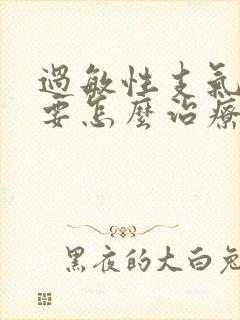 過敏性支氣
要怎麼治療
黑夜的大白兔